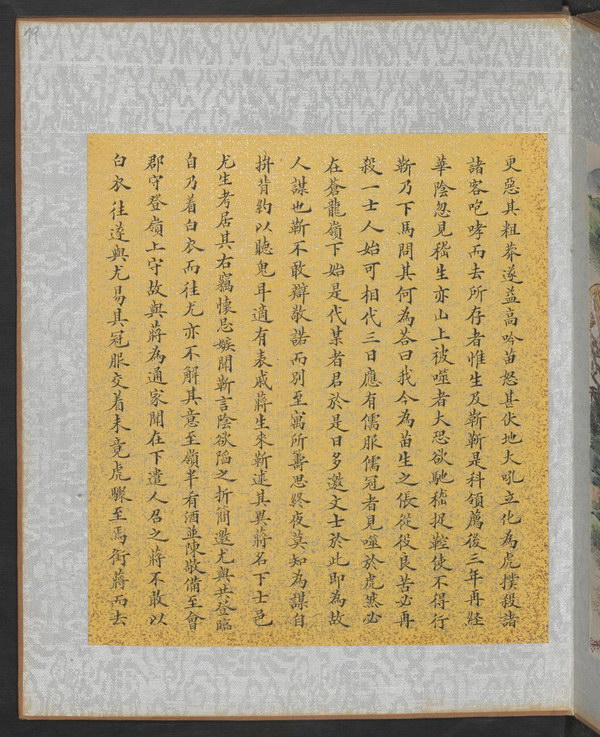 19
更惡其粗莽遂益高吟苗怒甚伏地大吼立化為虎撲殺諸
諸客咆哮而去所存者惟生及靳靳是科領薦後三年再經
華陰忽見嵇生亦山上被噬者大恐欲馳嵇捉鞚使不得行
靳乃下馬問其何為答曰我今為苗生之倀從役良苦必再
殺一士人始可相代三日應有儒服儒冠者見噬於虎然必
在蒼龍嶺下始是代某者君於是日多邀文士於此即為故
人謀也靳不敢辯敬諾而別至寓所籌思終夜莫知為謀自
拚背約以聽鬼耳適有表戚蔣生來靳述其異蔣名下士邑
尤生考居其右竊懷忌嫉聞靳言陰欲陷之折簡邀尤與共登臨
自乃着白衣而往尤亦不解其意至嶺半肴酒並陳敬備至會
郡守登嶺上守故與蔣為通家聞在下遣人召之蔣不敢以
白衣往遂與尤易其冠服交着未竟虎驟至焉銜蔣而去